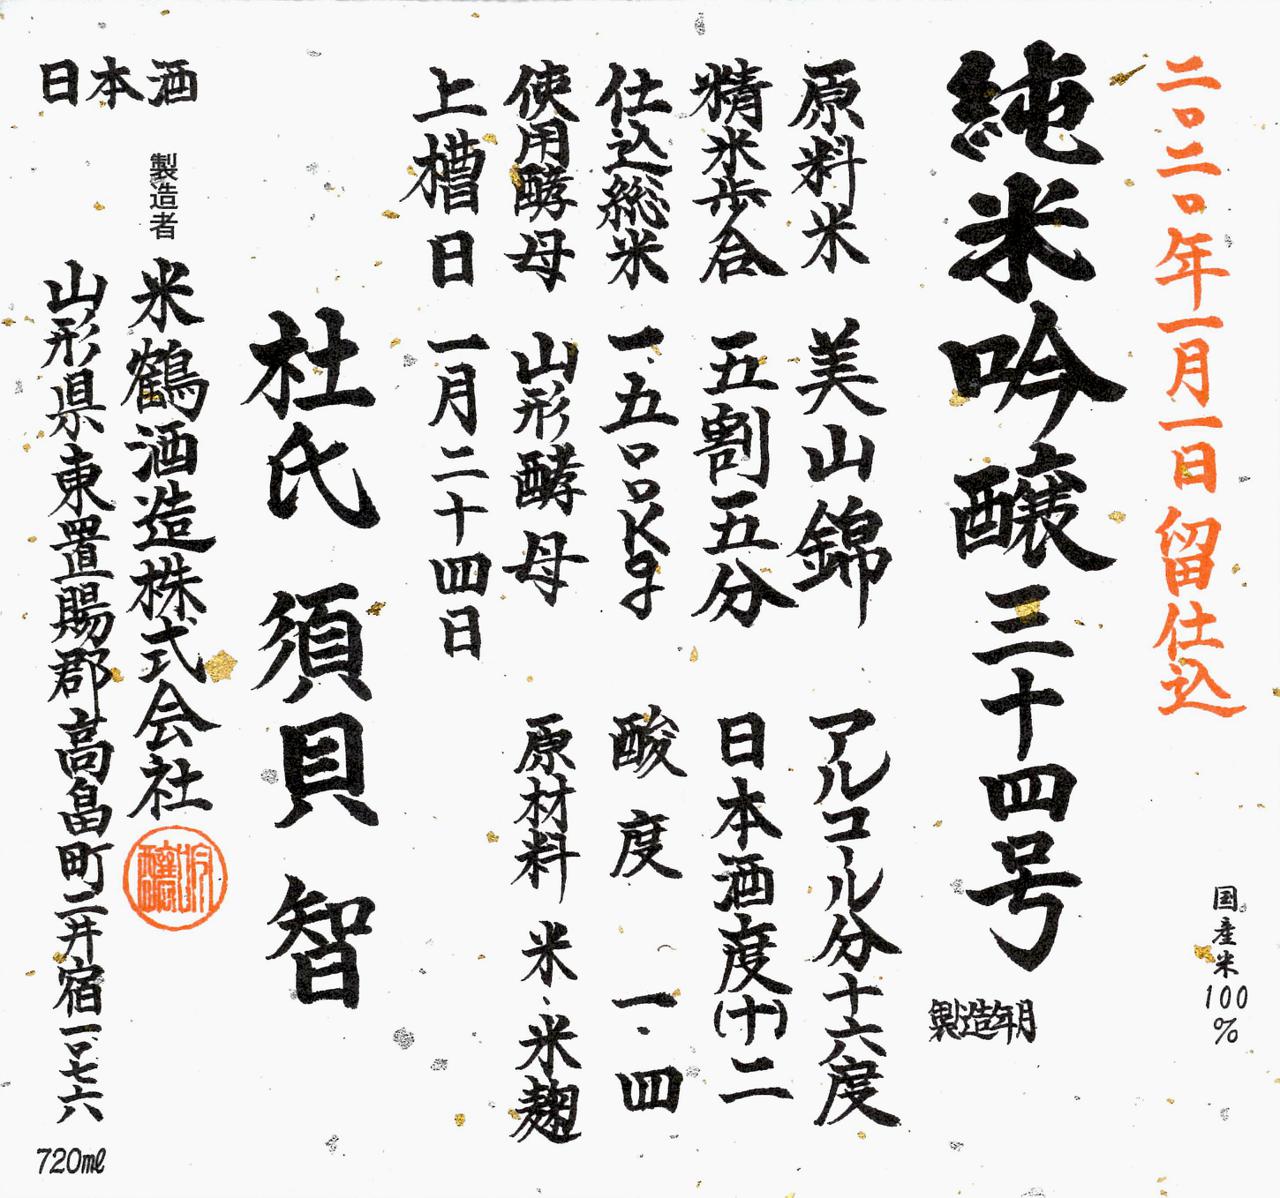 二〇二〇年一月一日留仕込
国産米100%
純米吟醸三十四号
製造年月
原料米 美山錦 アルコール分十六度
精米歩合 五割五分 日本酒度(十)二
仕込総米 一.五〇〇Kg 酸度 一.四
使用酵母 山形酵母 原材料 米、米麹
上槽日 一月二十四日
杜氏 須貝 智
日本酒
製造者 米鶴酒造株式会社
山形県東置賜郡高畠町二井宿一〇七六
720ml